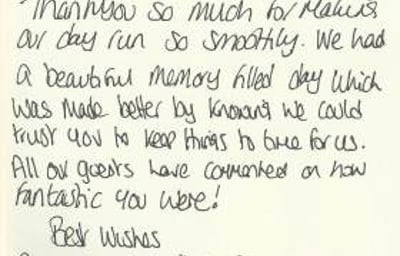 "Thankyou so much for Making
our day run so smoothly. We had
a beautiful memory filled day which
was made better by knowing we could
trust you to keep things to time for us.
All our guests have commented on how
fantastic you were!
Best Wishes